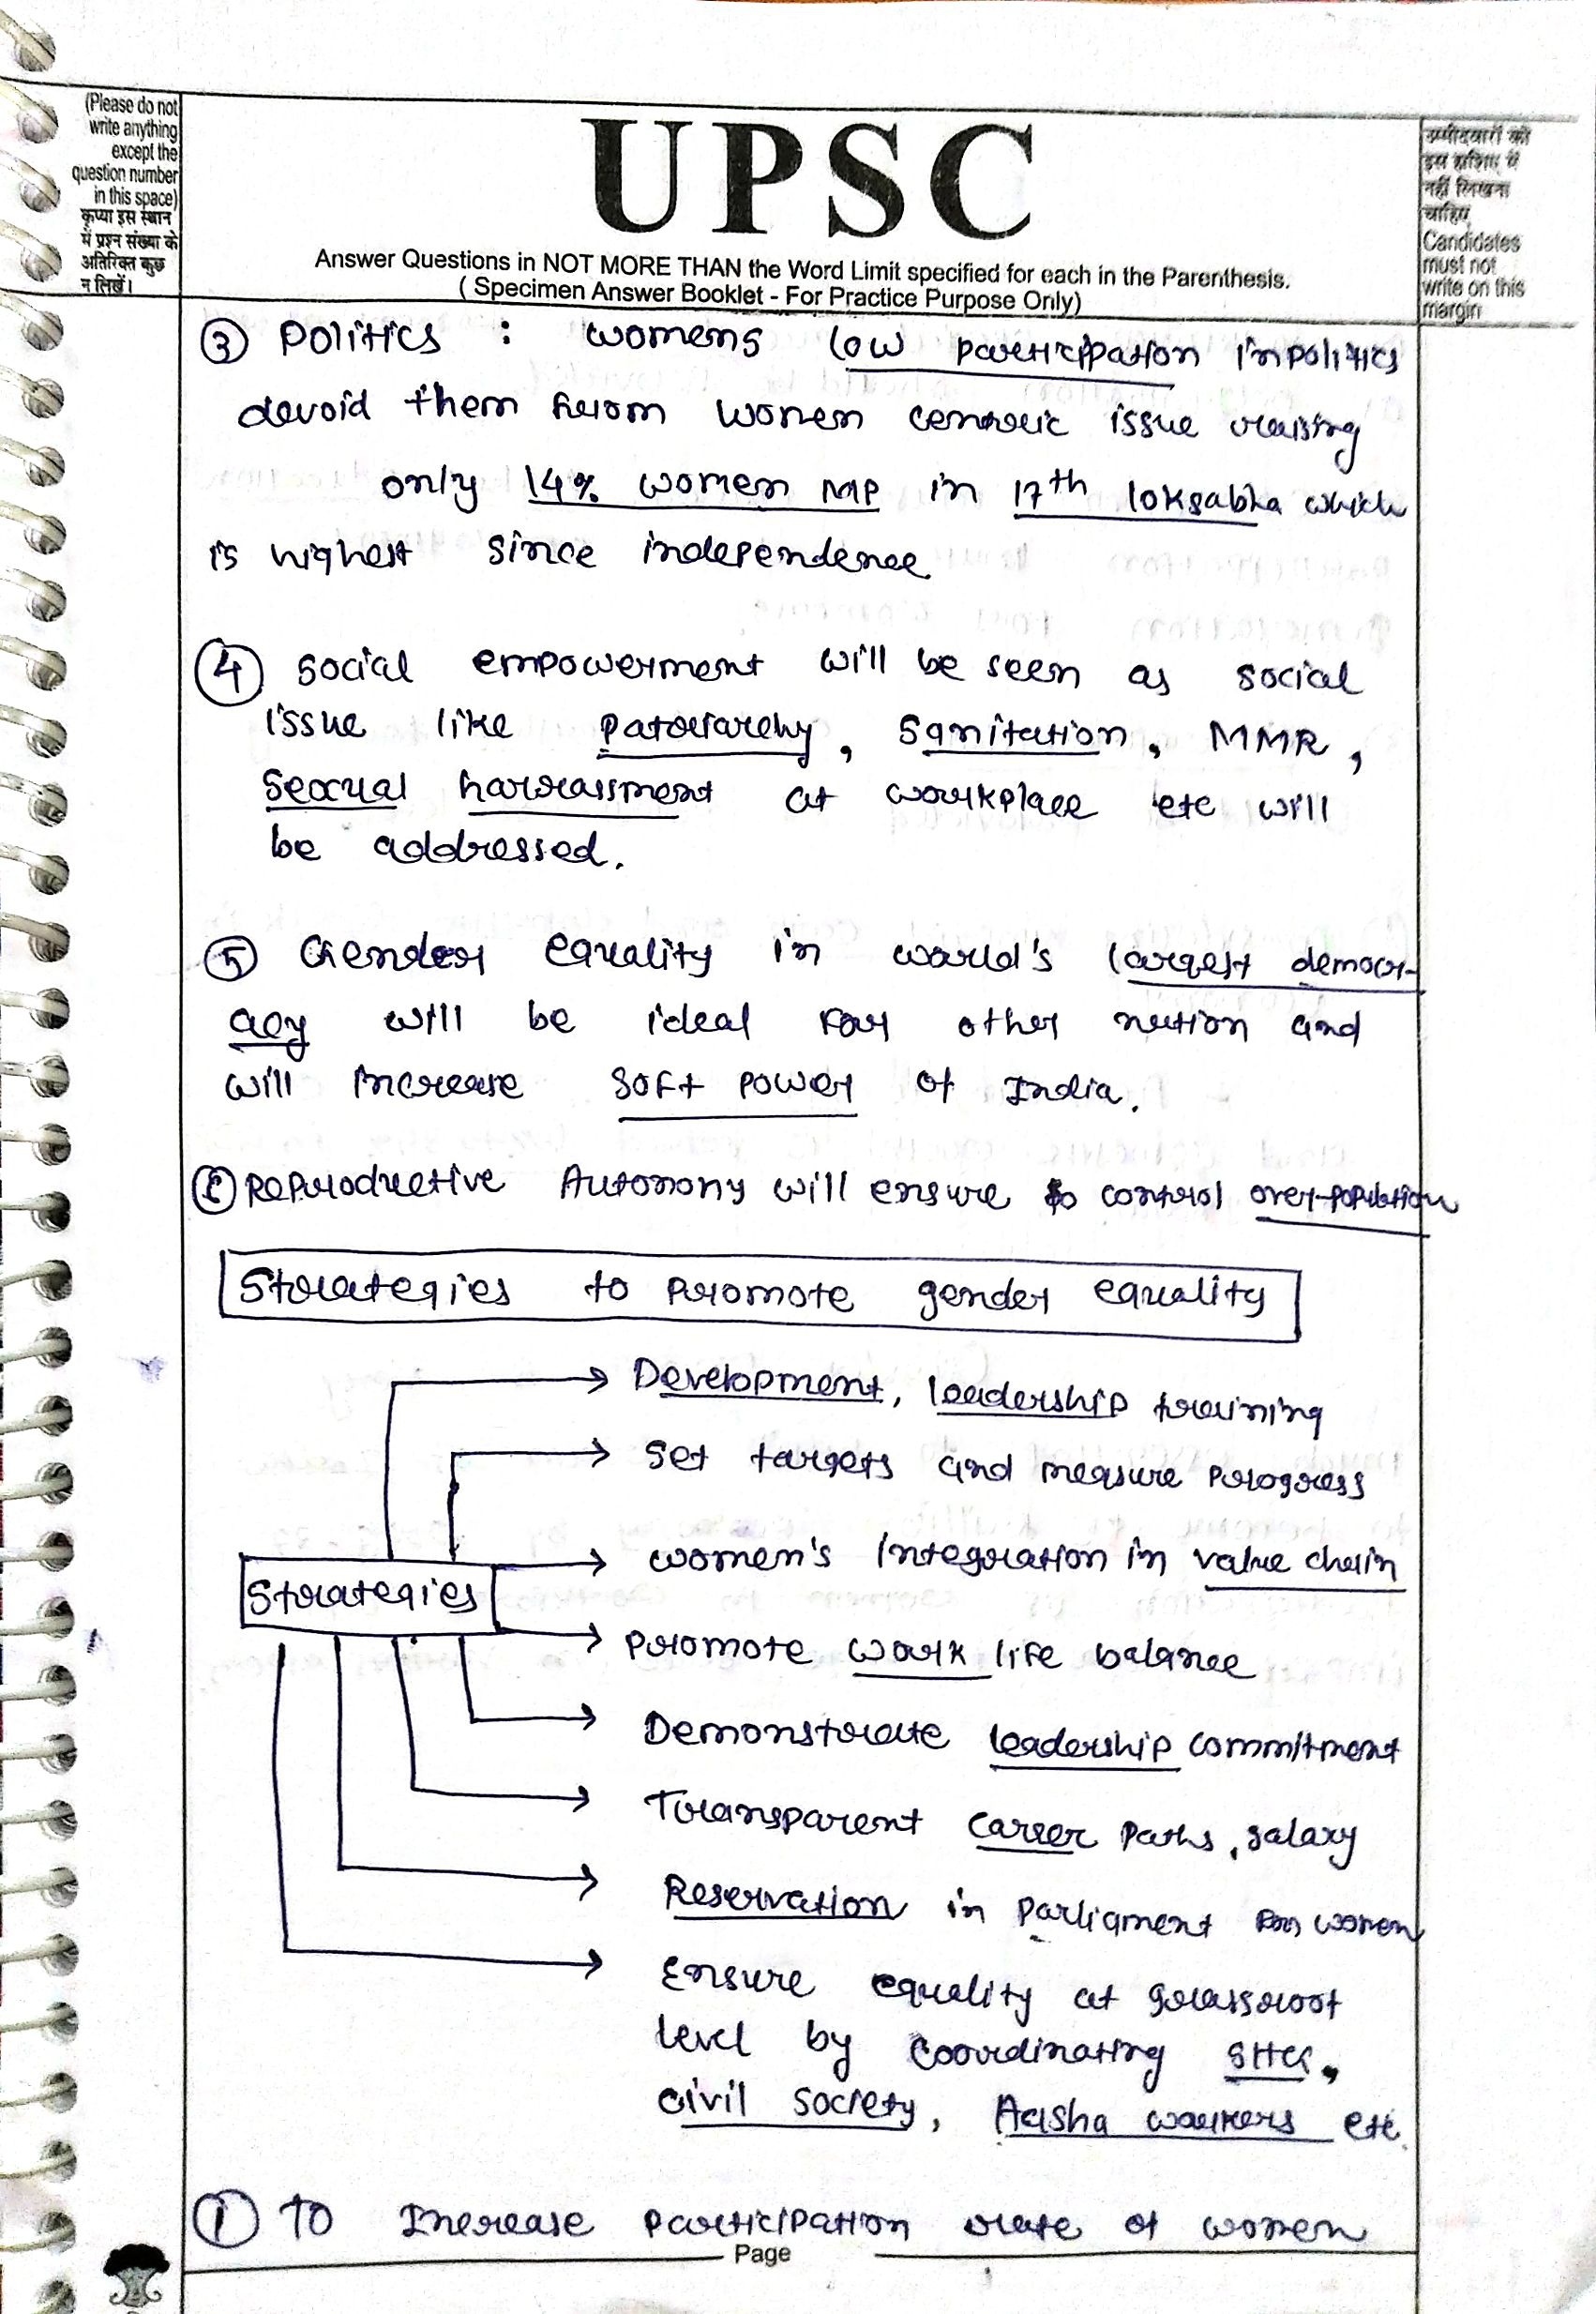 (Please do not
write anything
except the
question number
in this space)
कृप्या इस स्थान
में प्रश्न संख्या के
अतिरिक्त कुछ
न लिखें।
UPSC
Answer Questions in NOT MORE THAN the Word Limit specified for each in the Parenthesis.
( Specimen Answer Booklet - For Practice Purpose Only)
उम्मीदवारों को
इस हाशिए में
नहीं लिखना
चाहिए
Candidates
must not
write on this
margin
③ Politics : womens low participation in politics
devoid them from women centric issue raising
only 14% women MP in 17th loksabha which
is highest since independence
④ Social empowerment will be seen as social
issue like patriarchy, Sanitation, MMR,
Sexual harrassment at workplace etc will
be addressed.
⑤ Gender equality in world's largest democr-
acy will be ideal for other nation and
will increase soft power of India.
⑥ Reproductive Autonomy will ensure to control over-population
Strategies to promote gender equality
Development, leadership training
Set targets and measure progress
women's Integration in value chain
Strategies
Promote work life balance
Demonstrate leadership commitment
Transparent career paths, salary
Reservation in Parliament for women
Ensure equality at grassroot
level by coordinating SHG,
civil society, Aasha workers etc.
① To Increase participation rate of women
Page